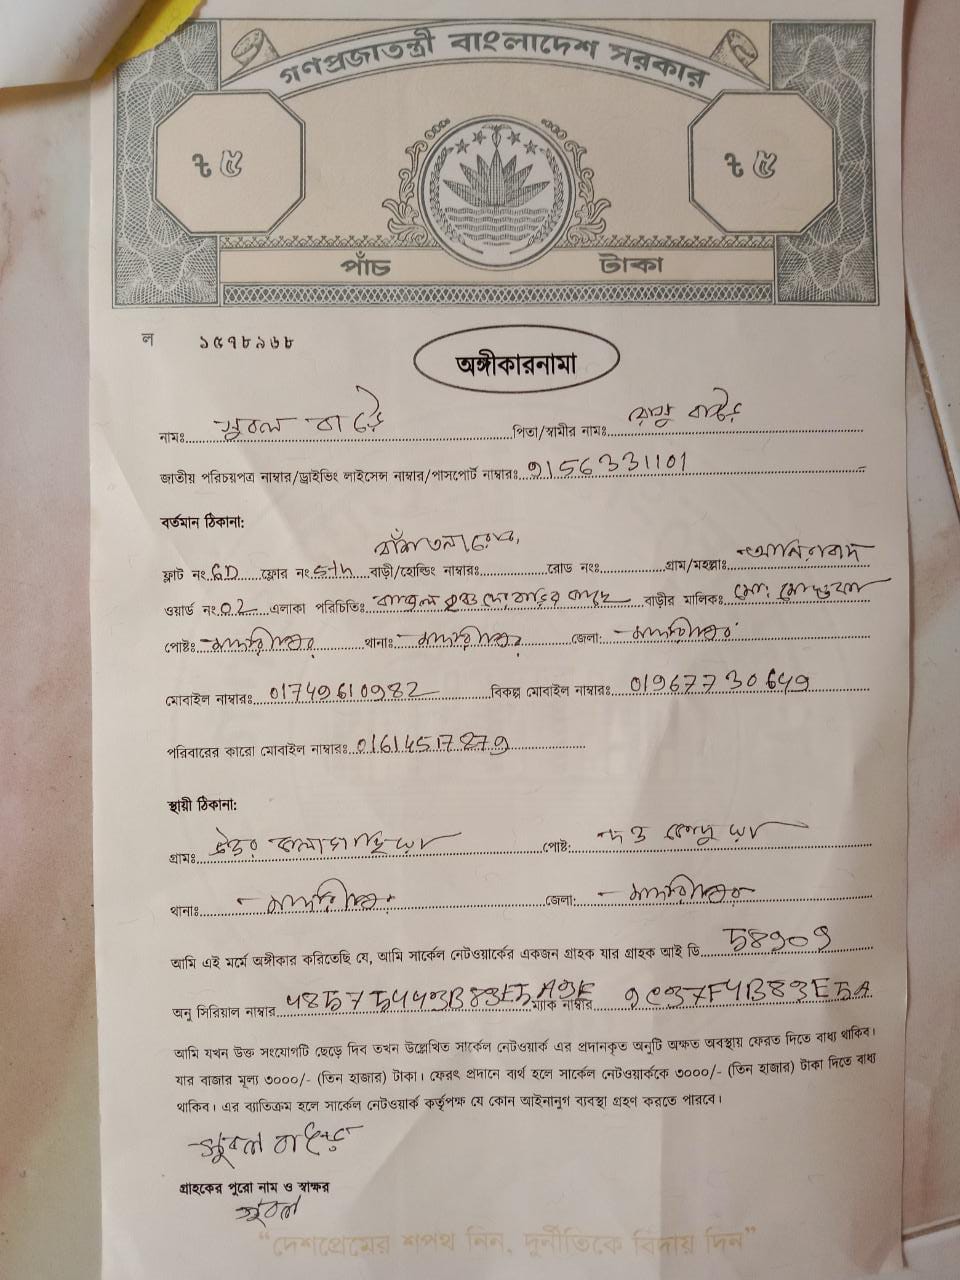 গণপ্রজাতন্ত্রী বাংলাদেশ সরকার
৳ ৫ ৳ ৫
পাঁচ টাকা
ল ১৫৭৮৯৬৮
অঙ্গীকারনামা
নামঃ সুবল বাড়ৈ পিতা/স্বামীর নামঃ বাড়ৈ
জাতীয় পরিচয়পত্র নাম্বার/ড্রাইভিং লাইসেন্স নাম্বার/পাসপোর্ট নাম্বারঃ 9156331101
বর্তমান ঠিকানা:
ফ্লাট নং. 6D ফ্লোর নং 5th বাড়ী/হোল্ডিং নাম্বারঃ রোড নং গ্রাম/মহল্লাঃ
ওয়ার্ড নং. 02 এলাকা পরিচিতিঃ বাড়ীর মালিকঃ মোঃ
পোষ্টঃ মাদারীপুর থানাঃ মাদারীপুর জেলা: মাদারীপুর
মোবাইল নাম্বারঃ 01749610982 বিকল্প মোবাইল নাম্বারঃ 01967730649
পরিবারের কারো মোবাইল নাম্বারঃ
স্থায়ী ঠিকানা:
গ্রামঃ পোষ্ট:
থানাঃ মাদারীপুর জেলা: মাদারীপুর
আমি এই মর্মে অঙ্গীকার করিতেছি যে, আমি সার্কেল নেটওয়ার্কের একজন গ্রাহক যার গ্রাহক আই ডি
অনু সিরিয়াল নাম্বার ম্যাক নাম্বার
আমি যখন উক্ত সংযোগটি ছেড়ে দিব তখন উল্লেখিত সার্কেল নেটওয়ার্ক এর প্রদানকৃত অনুটি অক্ষত অবস্থায় ফেরত দিতে বাধ্য থাকিব।
যার বাজার মূল্য ৩০০০/- (তিন হাজার) টাকা। ফেরৎ প্রদানে ব্যর্থ হলে সার্কেল নেটওয়ার্ককে ৩০০০/- (তিন হাজার) টাকা দিতে বাধ্য
থাকিব। এর ব্যতিক্রম হলে সার্কেল নেটওয়ার্ক কর্তৃপক্ষ যে কোন আইনানুগ ব্যবস্থা গ্রহণ করতে পারবে।
সুবল বাড়ৈ
গ্রাহকের পুরো নাম ও স্বাক্ষর
সুবল
“দেশপ্রেমের শপথ নিন, দুর্নীতিকে বিদায় দিন”